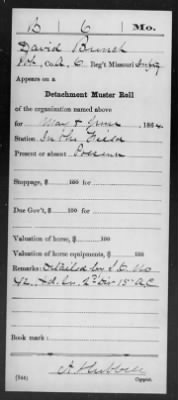 B 6 Mo.
David Bunch
Pvt., Co. A, 6 Reg't Missouri Infantry
Appears on a
Detachment Muster Roll
of the organization named above
for May & June, 1864.
Station In the Field
Present or absent Present
Stoppage, $ 100 for
Due Gov't, $ 100 for
Valuation of horse, $ 100
Valuation of horse equipments, $ 100
Remarks: Detailed by S.O. No
42. Hd. Qr. 2" Div 15" A.C
Book mark:
Hubbell
(344) Copyist.